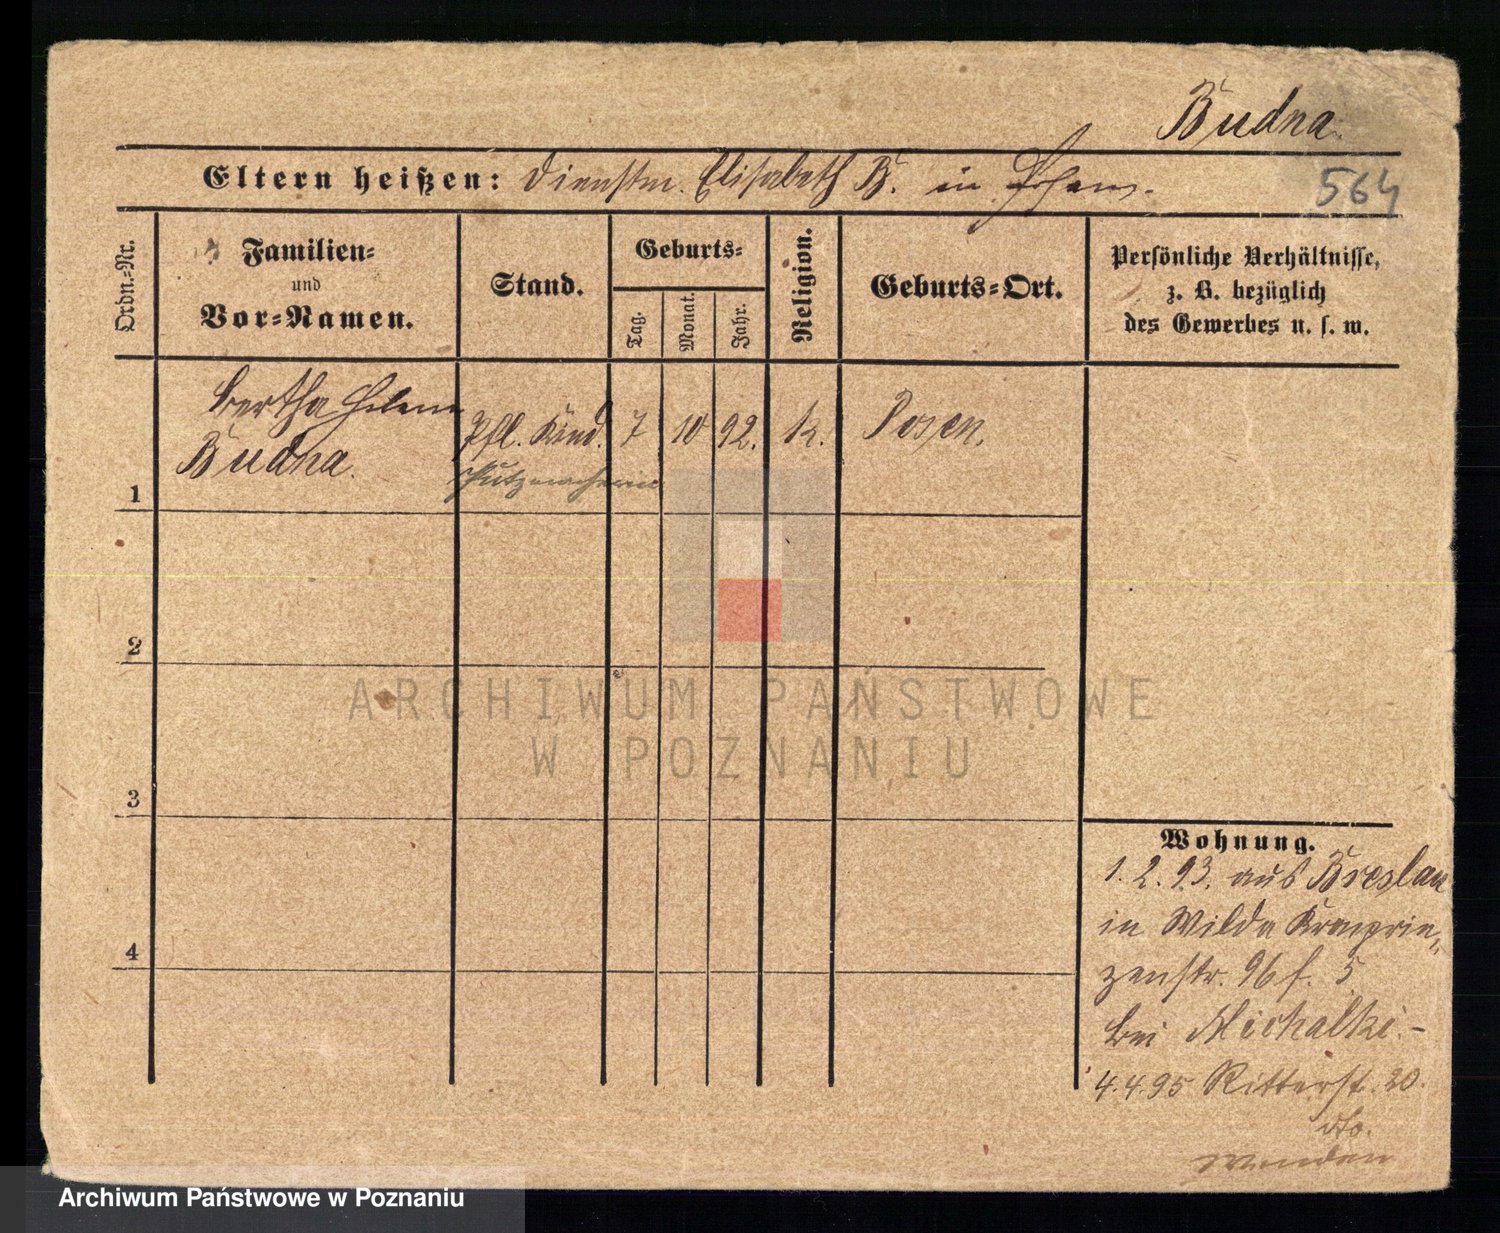 Budna
Eltern heißen: Dienstm. Elisabeth B. in
564
Ordn.=Nr.
Familien=
und
Vor=Namen.
Stand.
Geburts=
Tag.
Monat.
Jahr.
Religion.
Geburts=Ort.
Persönliche Verhältnisse,
z. B. bezüglich
des Gewerbes u. s. w.
Bertha Helene
Budna.
Pfl. Kind.
7
10
92.
k.
Posen.
Putzmacherin
1
2
3
4
ARCHIWUM PAŃSTWOWE
W POZNANIU
Wohnung.
1. 2. 93. aus Breslau
in Wilda Kronprin„
zenstr. 96 f. 5
bei Michalki.-
4.4.95 Ritterst. 20.
dto.
wenden
Archiwum Państwowe w Poznaniu